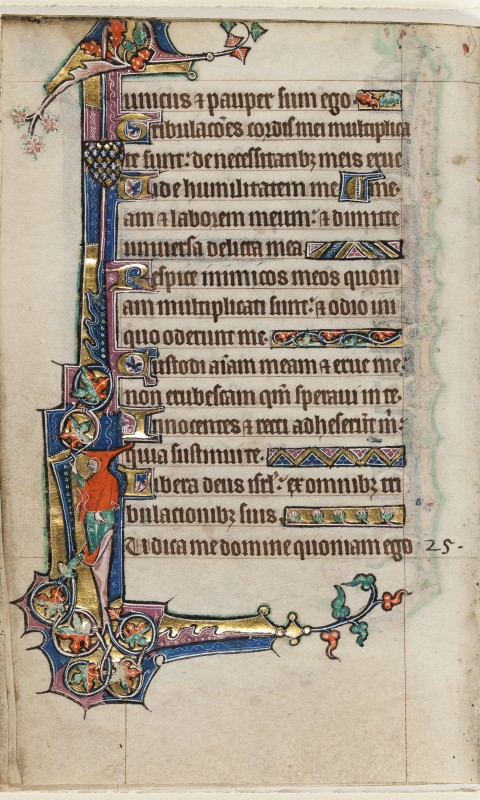 unicus ⁊ pauper sum ego.
Tribulacoẽs cordis mei multiplica
te sunt: de necessitatibꝫ meis erue
Uide humilitatem me me.
am ⁊ laborem meum: ⁊ dimitte
universa delicta mea
Respice inimicos meos quoni
am multiplicati sunt: ⁊ odio ini
quo oderunt me.
Custodi aĩam meam ⁊ erue me
non erubescam qm̃ speravi in te.
Innocentes ⁊ recti adheserũt m̃:
quia sustinui te.
Libera deus isrl̃: ex omnibꝫ tri
bulacionibꝫ suis.
Iudica me domine quoniam ego 25.